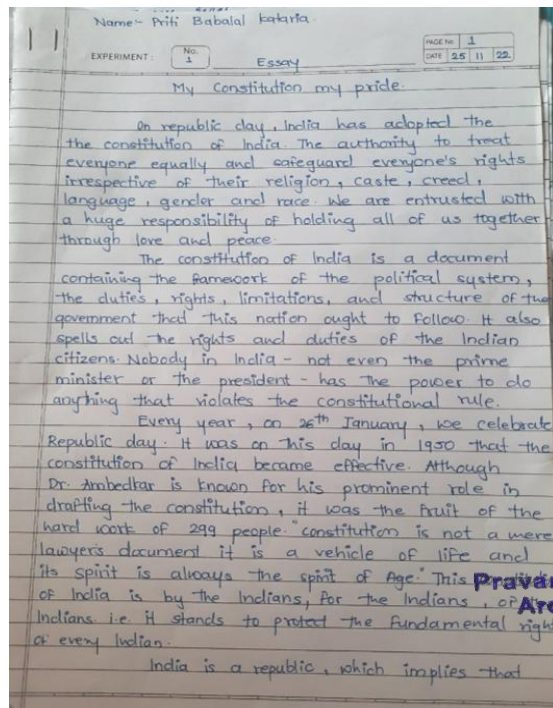 Name:- Priti Babalal kataria.
EXPERIMENT: No. 1
PAGE No. 1
DATE 25 11 22
Essay
My Constitution my pride.
On republic day, India has adopted the
the constitution of India. The authority to treat
everyone equally and safeguard everyone's rights
irrespective of their religion, caste, creed,
language, gender and race. We are entrusted with
a huge responsibility of holding all of us together
through love and peace.
The constitution of India is a document
containing the framework of the political system,
the duties, rights, limitations, and structure of the
government that this nation ought to follow. It also
spells out the rights and duties of the Indian
citizens. Nobody in India - not even the prime
minister or the president - has the power to do
anything that violates the constitutional rule.
Every year, on 26th January, we celebrate
Republic day. It was on this day in 1950 that the
constitution of India became effective. Although
Dr. Ambedkar is known for his prominent role in
drafting the constitution, it was the fruit of the
hard work of 299 people. "constitution is not a mere
lawyer's document it is a vehicle of life and
its spirit is always the spirit of Age." This Pravar
of India is by the Indians, for the Indians, of Are
Indians. i.e. it stands to protect the fundamental right
of every Indian.
India is a republic, which implies that